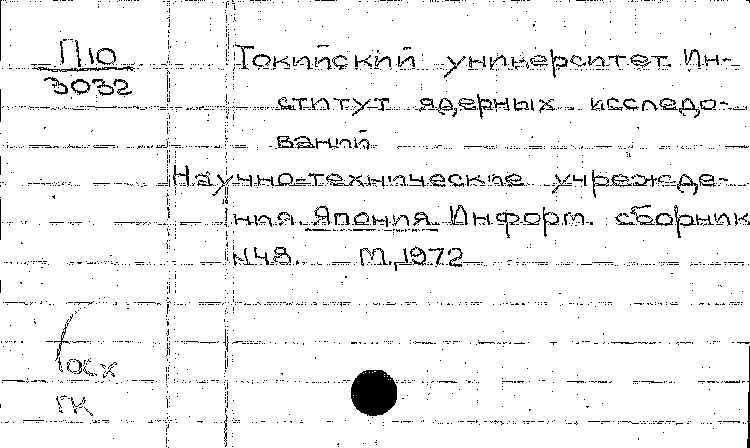 П10
3032
Токийский университет. Ин-
ститут ядерных исследо-
ваний
Научно-технические учрежде-
ния. Япония. Информ. сборник
N48. М., 1972
ГК